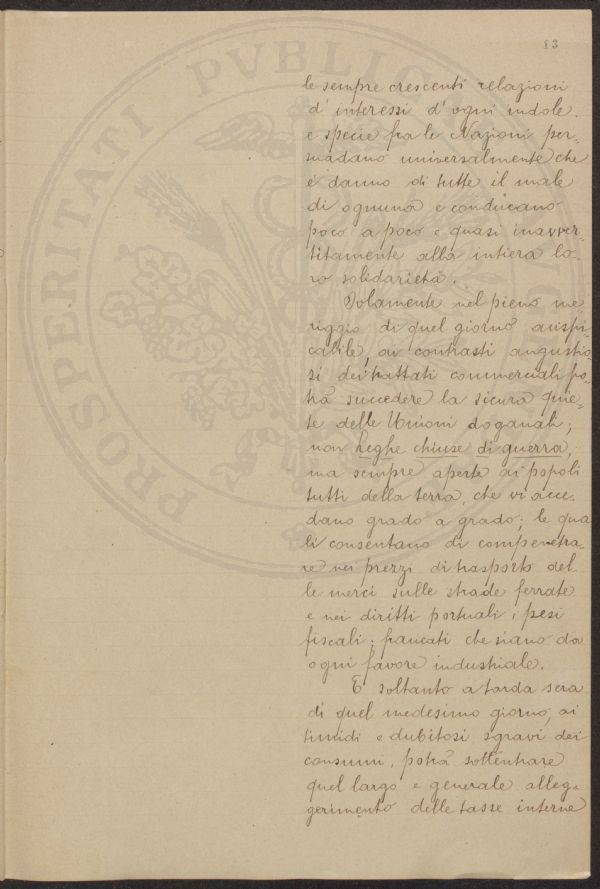 83
le sempre crescenti relazioni
d'interessi d'ogni indole.
e specie fra le Nazioni per-
suadano universalmente che
è danno di tutte il male
di ognuna e conducano
poco a poco e quasi inavver-
titamente alla intiera lo-
ro solidarietà.
Solamente nel pieno me
riggio di quel giorno auspi
cabile, ai contrasti angustio-
si dei trattati commerciali po-
trà succedere la sicura quie-
te delle Unioni doganali;
non leghe chiuse di guerra,
ma sempre aperte ai popoli
tutti della terra, che vi acce-
dano grado a grado; le qua
li consentano di compenetra-
re nei prezzi di trasporto del-
le merci sulle strade ferrate
e nei diritti portuali i pesi
fiscali; francati che siano da
ogni favore industriale.
E soltanto a tarda sera
di quel medesimo giorno, ai
timidi e dubitosi sgravi dei
consumi, potrà sottentrare
quel largo e generale alleg-
gerimento delle tasse interne
PROSPERITATI PVBLIC